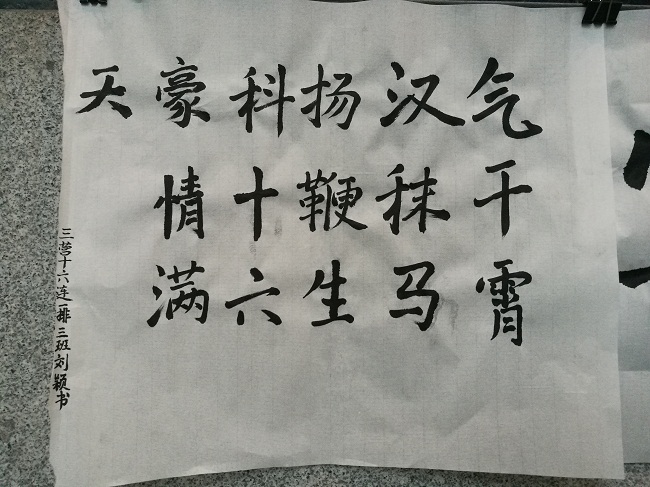 气干霄
汉秣马
扬鞭生
科十六
豪情满
天
三营十六连一排三班刘颖书